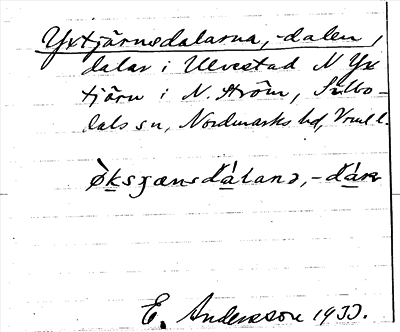 Yxtjärnsdalarna, -dalen,
dalar i Ulvestad N Yx
tjärn i N. Ström, Silbo-
dals sn, Nordmarks hd, Vrml l.
E. Andersson 1933.